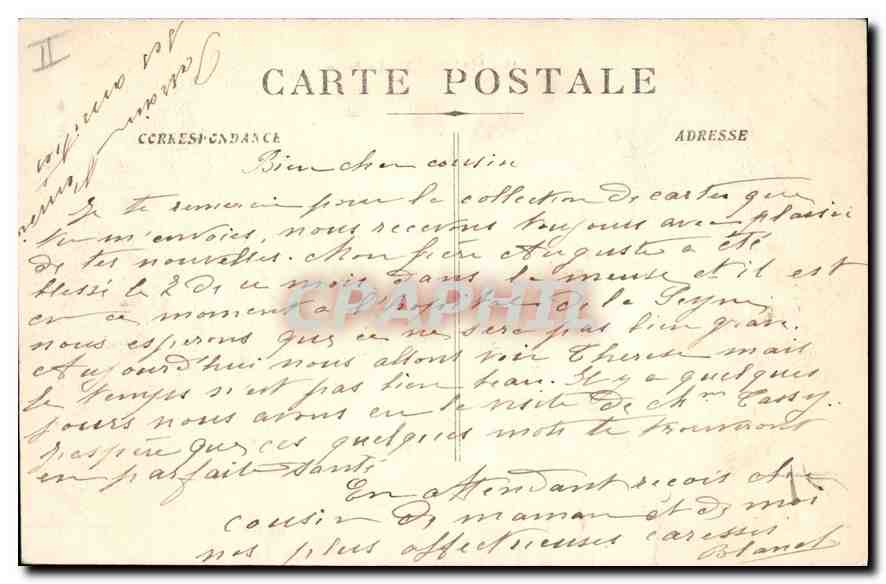 II
CARTE POSTALE
CORRESPONDANCE
ADRESSE
Bien cher cousin
Je te remercie pour la collection de cartes que
tu m'envoies, nous recevons toujours avec plaisir
de tes nouvelles. Mon frère Auguste a été
blessé le 2 de ce mois dans la meuse et il est
en ce moment a l'hopital de la Peyne
nous esperons que ce ne sera pas bien grave.
Aujourd'hui nous allons voir Therese mais
le temps n'est pas bien beau. Il y a quelques
jours nous avons eu la visite de Mme Cassy.
J'espère que ces quelques mots te trouveront
en parfaite santé
En attendant reçois cher
cousin de maman et de moi
nos plus affectueuses caresses
Blanch
CPAPHIL